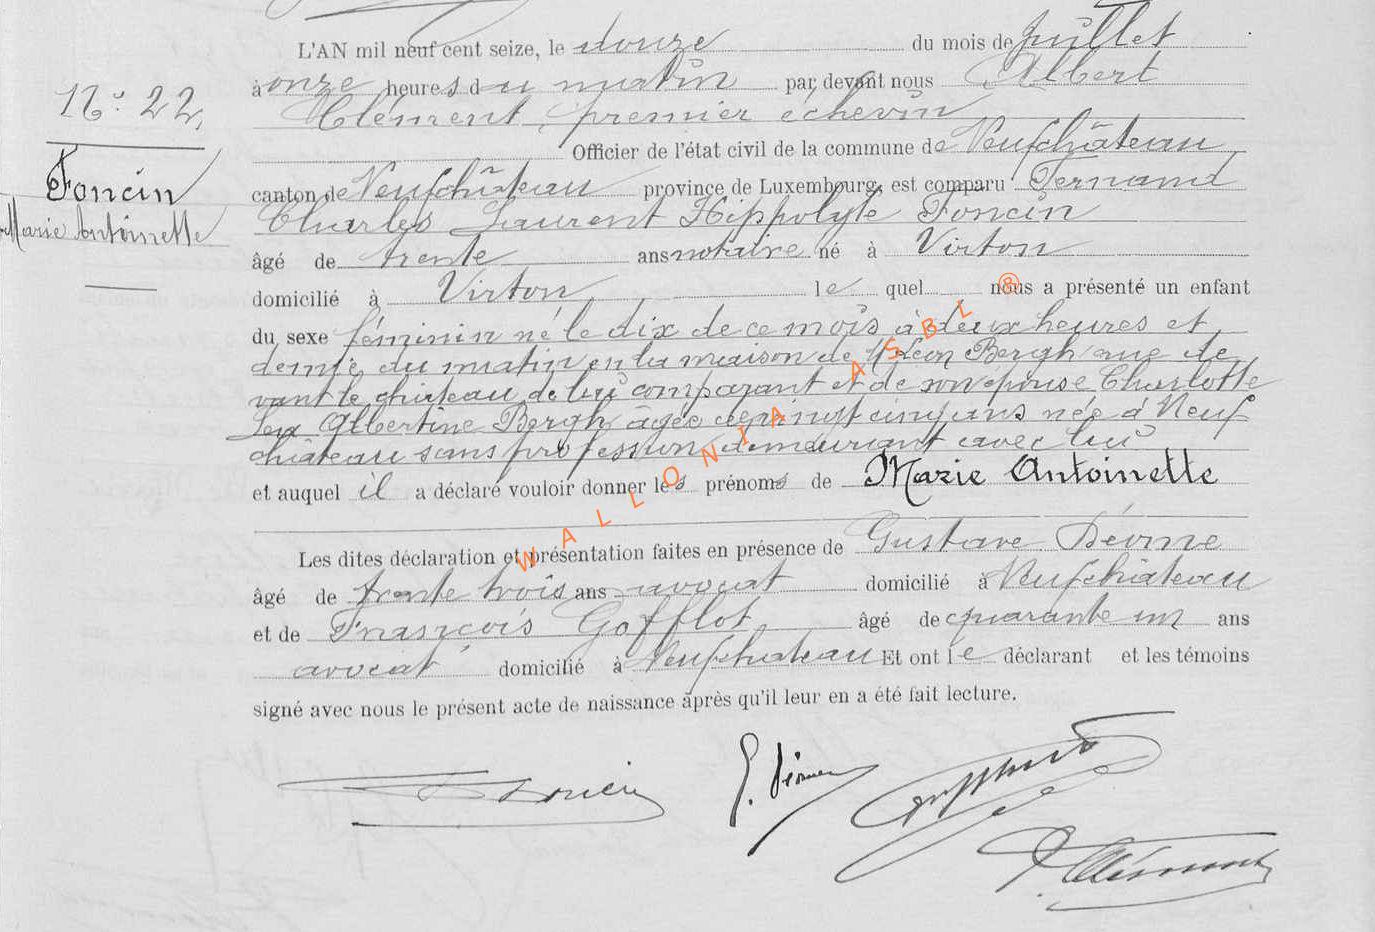 L'AN mil neuf cent seize, le douze du mois de Juillet
N° 22.
à onze heures du matin par devant nous Albert
Clément, premier échevin
Officier de l'état civil de la commune de Neufchâteau
Foncin
canton de Neufchâteau province de Luxembourg, est comparu Fernand
Marie Antoinette
Charles Laurent Hippolyte Foncin
âgé de trente ans notaire né à Virton
domicilié à Virton, lequel nous a présenté un enfant
du sexe féminin né le dix de ce mois à deux heures et
demie du matin en la maison de Mr Léon Bergh rue de
vant le château de lui comparant et de son épouse Charlotte
Albertine Bergh âgée de vingt cinq ans née à Neuf
château sans profession demeurant avec lui
et auquel il a déclaré vouloir donner les prénoms de Marie Antoinette
Les dites déclaration et présentation faites en présence de Gustave Déome
âgé de trente trois ans avocat domicilié à Neufchateau
et de François Gofflot, âgé de quarante un ans
avocat domicilié à Neufchateau Et ont le déclarant et les témoins
signé avec nous le présent acte de naissance après qu'il leur en a été fait lecture.
Foncin
G. Déome
Clément
WALLONIA ASBL ®